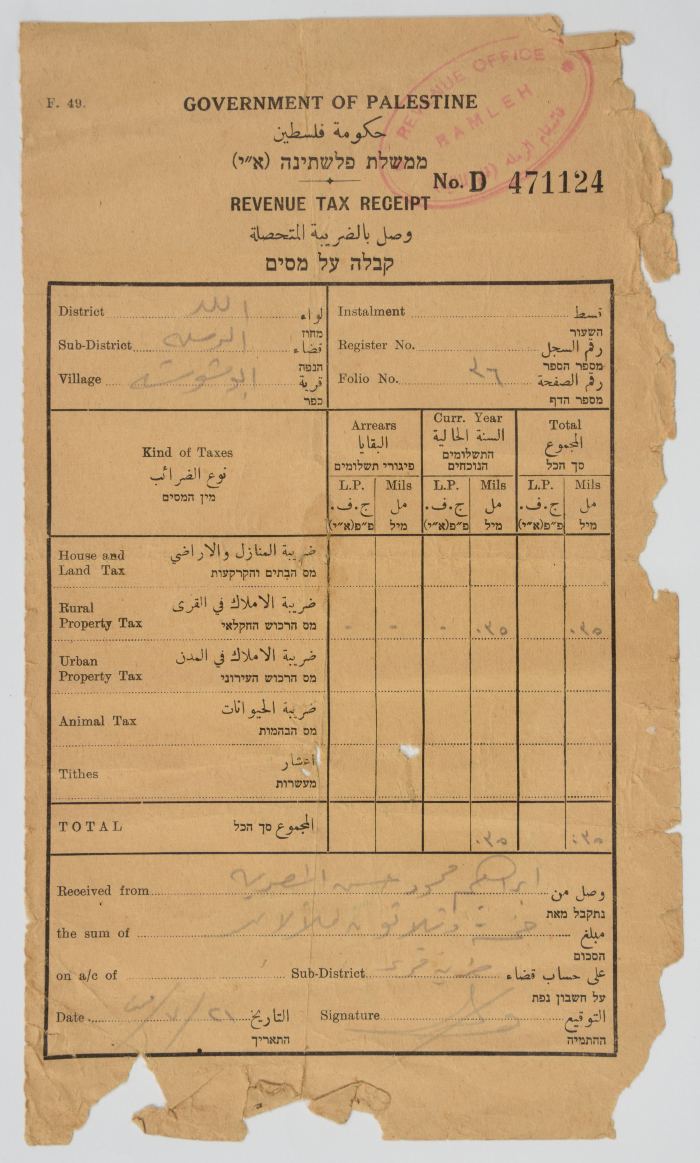 REVENUE OFFICE
RAMLEH
F. 49.
GOVERNMENT OF PALESTINE
حكومة فلسطين
ממשלת פלשתינה (א״י)
No. D 471124
REVENUE TAX RECEIPT
وصل بالضريبة المتحصلة
קבלה על מסים
District اللد لواء
מחוז
Sub-District الرملة قضاء
הנפה
Village ابو شوشة قرية
כפר
Instalment قسط
השעור
Register No. رقم السجل
מספר הספר
Folio No. ٣٦ رقم الصفحة
מספר הדף
Kind of Taxes
نوع الضرائب
מין המסים
Arrears
البقايا
פיגורי תשלומים
Curr. Year
السنة الحالية
התשלומים
הנוכחים
Total
المجموع
סך הכל
L.P. Mils L.P. Mils L.P. Mils
ج.ف. مل ج.ف. مل ج.ف. مل
פ״פ(א״י) מיל פ״פ(א״י) מיל פ״פ(א״י) מיל
House and ضريبة المنازل والاراضي
Land Tax מס הבתים והקרקעות
Rural ضريبة الاملاك في القرى
Property Tax מס הרכוש החקלאי - - - ٠٣٥ ٠٣٥
Urban ضريبة الاملاك في المدن
Property Tax מס הרכוש העירוני
Animal Tax ضريبة الحيوانات
מס הבהמות
Tithes اعشار
מעשרות
TOTAL המجموع סך הכל ٠٣٥ ٠٣٥
Received from ابراهيم محمود حسن وصل من
נתקבל מאת
the sum of خمسة وثلاثون مبلغ
הסכום
on a/c of Sub-District على حساب قضاء
על חשבון נפת
Date التاريخ Signature التوقيع
התאריך החתימה